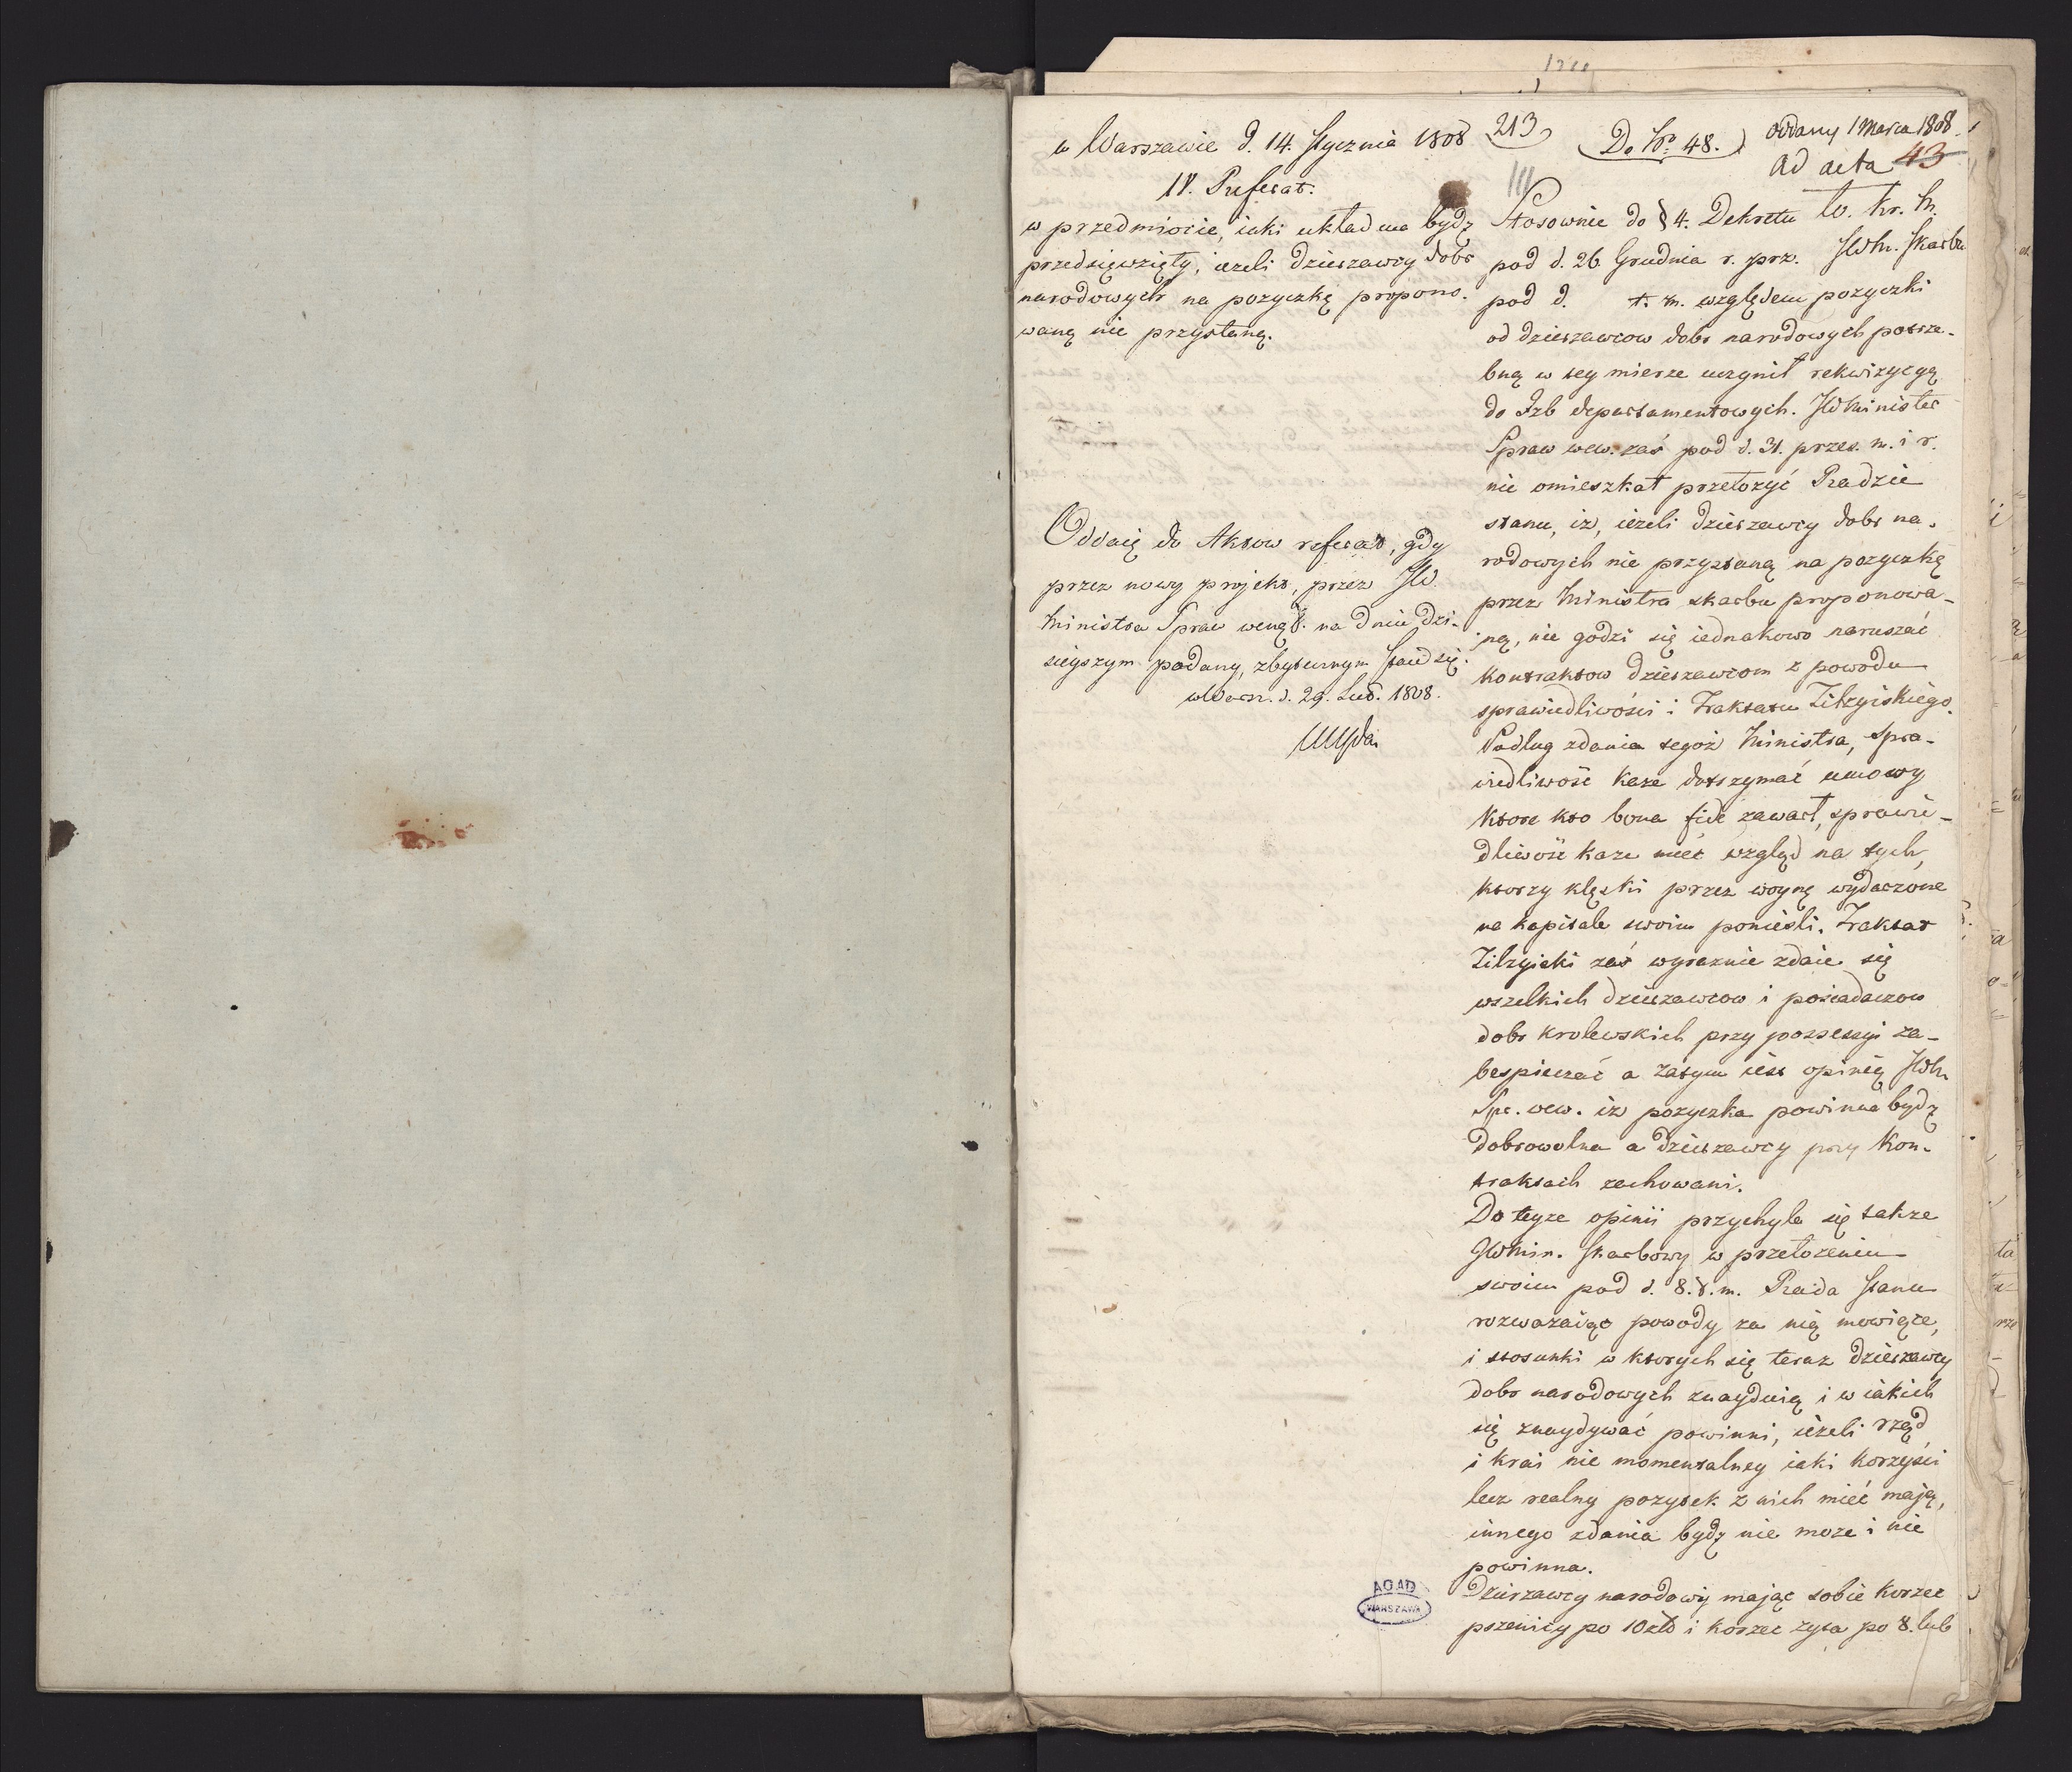 w Warszawie d. 14. Stycznia 1808
18. Referat.
w przedmiocie, iaki układ ma bydź
przedsięwzięty, ieżeli dzierzawcy dobr
narodowych na pozyczkę propono-
waną nie przystaną.
Oddaię do Aktow referat, gdy
przez nowy projekt, przez JW
Ministra Spraw wewą. na dniu dzi-
sieyszym podany, zbytecznym staie się.
w Warsz. d. 29. Lut. 1808.
213
Do Nro 48.
oddany 1 Marca 1808
ad acta 43
Stosownie do § 4. Dekretu W. Kr. M.
pod d. 26 Grudnia r. prz. JWM. Skarbu
pod d. t. m. względem pozyczki
od dzierzawcow dobr narodowych potrze-
bną w tey mierze uczynił rekwizycyą
do Izb departamentowych. JWMinister
Spraw wew. zaś pod d. 31. przes. m. i r.
nie omieszkał przełozyć Radzie
stanu, iz, ieżeli dzierzawcy dobr na-
rodowych nie przystaną na pozyczkę
przez Ministra skarbu proponowa-
ną, nie godzi się iednakowo naruszać
kontraktow dzierzawcom z powodu
sprawiedliwości i Traktatu Tilzyiskiego.
Podług zdania tegoż Ministra, spra-
wiedliwość kaze dotrzymać umowy
ktore kto bona fide zawarł, sprawie-
dliwość kaze mieć wzgląd na tych,
ktorzy klęski przez woynę wydarzone
na kapitale swoim ponieśli. Traktat
Tilzyiski zaś wyraznie zdaie się
wszelkich dzierzawcow i posiadaczow
dobr krolewskich przy possessyi za-
bespieczać a zatym iest opinią JWM
Spr. wew. iz pozyczka powinna bydz
dobrowolna a dzierzawcy przy kon-
traktach zachowani.
Do teyze opinii przychyla się takze
JWMin. Skarbowy w przełozeniu
swoim pod d. 8. t. m. Rada Stanu
rozwazaiąc powody za nią mowiące,
i stosunki w ktorych się teraz dzierzawcy
dobr narodowych znayduią i w iakich
się znaydywać powinni, ieżeli rząd
i kray nie momentalney iaki korzyści
lecz realny pozytek z nich mieć mają,
innego zdania bydź nie moze i nie
powinna.
Dzierzawcy narodowi mając sobie korzec
pszenicy po 10 zł i korzec zyta po 8. lub
AGAD
WARSZAWA